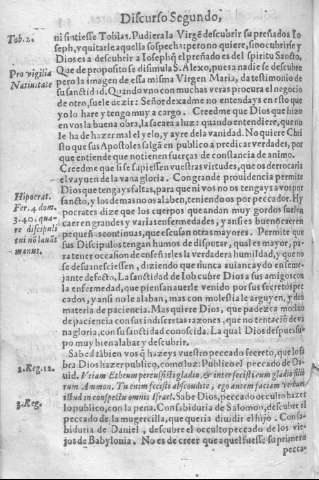 Discurso Segundo,
Tob. 2.
ni sintiesse Tobias. Pudiera la Virgẽ descubrir su preñado a Io
seph, y quitarle aquella sospecha: pero no quiere, sino cubrirse y
Dios es a descubrir a Ioseph q̃ el preñado es del spiritu Sancto.
Pro vigilia
Natiuitate
Que de proposito se disimula S. Alexo, pues a nadie se descubre
pero la imagen de essa misma Virgen Maria, da testimonio de
su sanctidad. Quando vno con muchas veras procura el negocio
de otro, suele dezir: Señor dexadme no entendays en esto que
yo lo hare y tengo muy a cargo. Creedme que Dios que hizo
en vos la buena obra, la sacara a luz: quando entendiere, que no
le ha de hazer mal el yelo, y ayre dela vanidad. No quiere Chri
sto que sus Apostoles salgã en publico a predicar verdades, por
que entiende que no tienen fuerças de constancia de animo.
Creedme que si se supiessen vuestras virtudes, que os derrocaria
el vayuen de la vana gloria. Con grande prouidencia permite
Dios que tengays faltas, para que ni vos no os tengays a vos por
sancto, y los demas no os alaben, teniendo os por peccador. Hy
Hipocrat.
Fer. 4. dom.
3. 40. qua-
re discipuli
ni nõ laua
manus.
pocrates dize que los cuerpos que andan muy gordos suelen
caer en grandes y varias enfermedades, y ansi es bueno tener
pequeñas quartinas, que escusan otras mayores. Permite que
sus Discipulos tengan humos de disputar, qual es mayor, pa-
ra tener occasion de enseñarles la verdadera humildad, y que no
se desuaneciessen, diziendo que nunca auian caydo en seme-
jante defecto. La sanctidad de Iob cubre Dios a sus amigos cõ
la enfermedad, que piensan auerle venido por sus secretos pec
cados, y ansi no le alaban, mas con molestia le arguyen, y dã
materia de paciencia. Mas quiere Dios, que padezca modio
de paciencia con sus indiscretas razones, que no tentaciõ de va
na gloria, con su sanctidad conoscida. La qual Dios despues su-
po muy bien alabar y descubrir.
Sabed tãbien vos q̃ hazeys vuestro peccado secreto, que lo sa
2. Reg. 12.
bra Dios hazer publico, como luz: Publico el peccado de Da-
uid. Vriam Etheum percussisti gladio, & interfecisti eum gladio filio
rum Ammon. Tu enim fecisti abscondite, ego autem faciam verbum
istud in conspectu omnis Israel. Sabe Dios, peccado oculto hazer
3. Reg.
lo publico, con la pena. Con sabiduria de Salomon, descubre el
peccado de la mugercilla, que queria diuidir el hijo. Con sa-
biduria de Daniel, descubre el occulto peccado de los vie-
jos de Babylonia. No es de creer que aquel fuesse su primero
pecca-